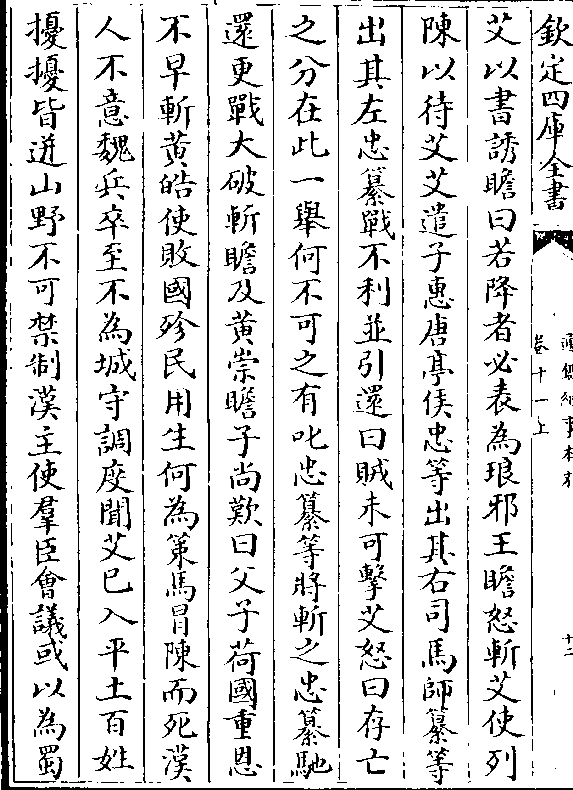 欽定四庫全書
卷十一上
十二
艾以書誘瞻曰若降者必表為琅邪王瞻怒斬艾使列
陳以待艾艾遣子惠唐亭侯忠等出其右司馬師纂等
出其左忠纂戰不利並引還曰賊未可擊艾怒曰存亡
之分在此一舉何不可之有叱忠纂等將斬之忠纂馳
還更戰大破斬瞻及黄崇瞻子尚歎曰父子荷國重恩
不早斬黄皓使敗國殄民用生何為策馬冒陳而死漢
人不意魏兵卒至不為城守調度聞艾已入平土百姓
擾擾皆迸山野不可禁制漢主使羣臣會議或以為蜀